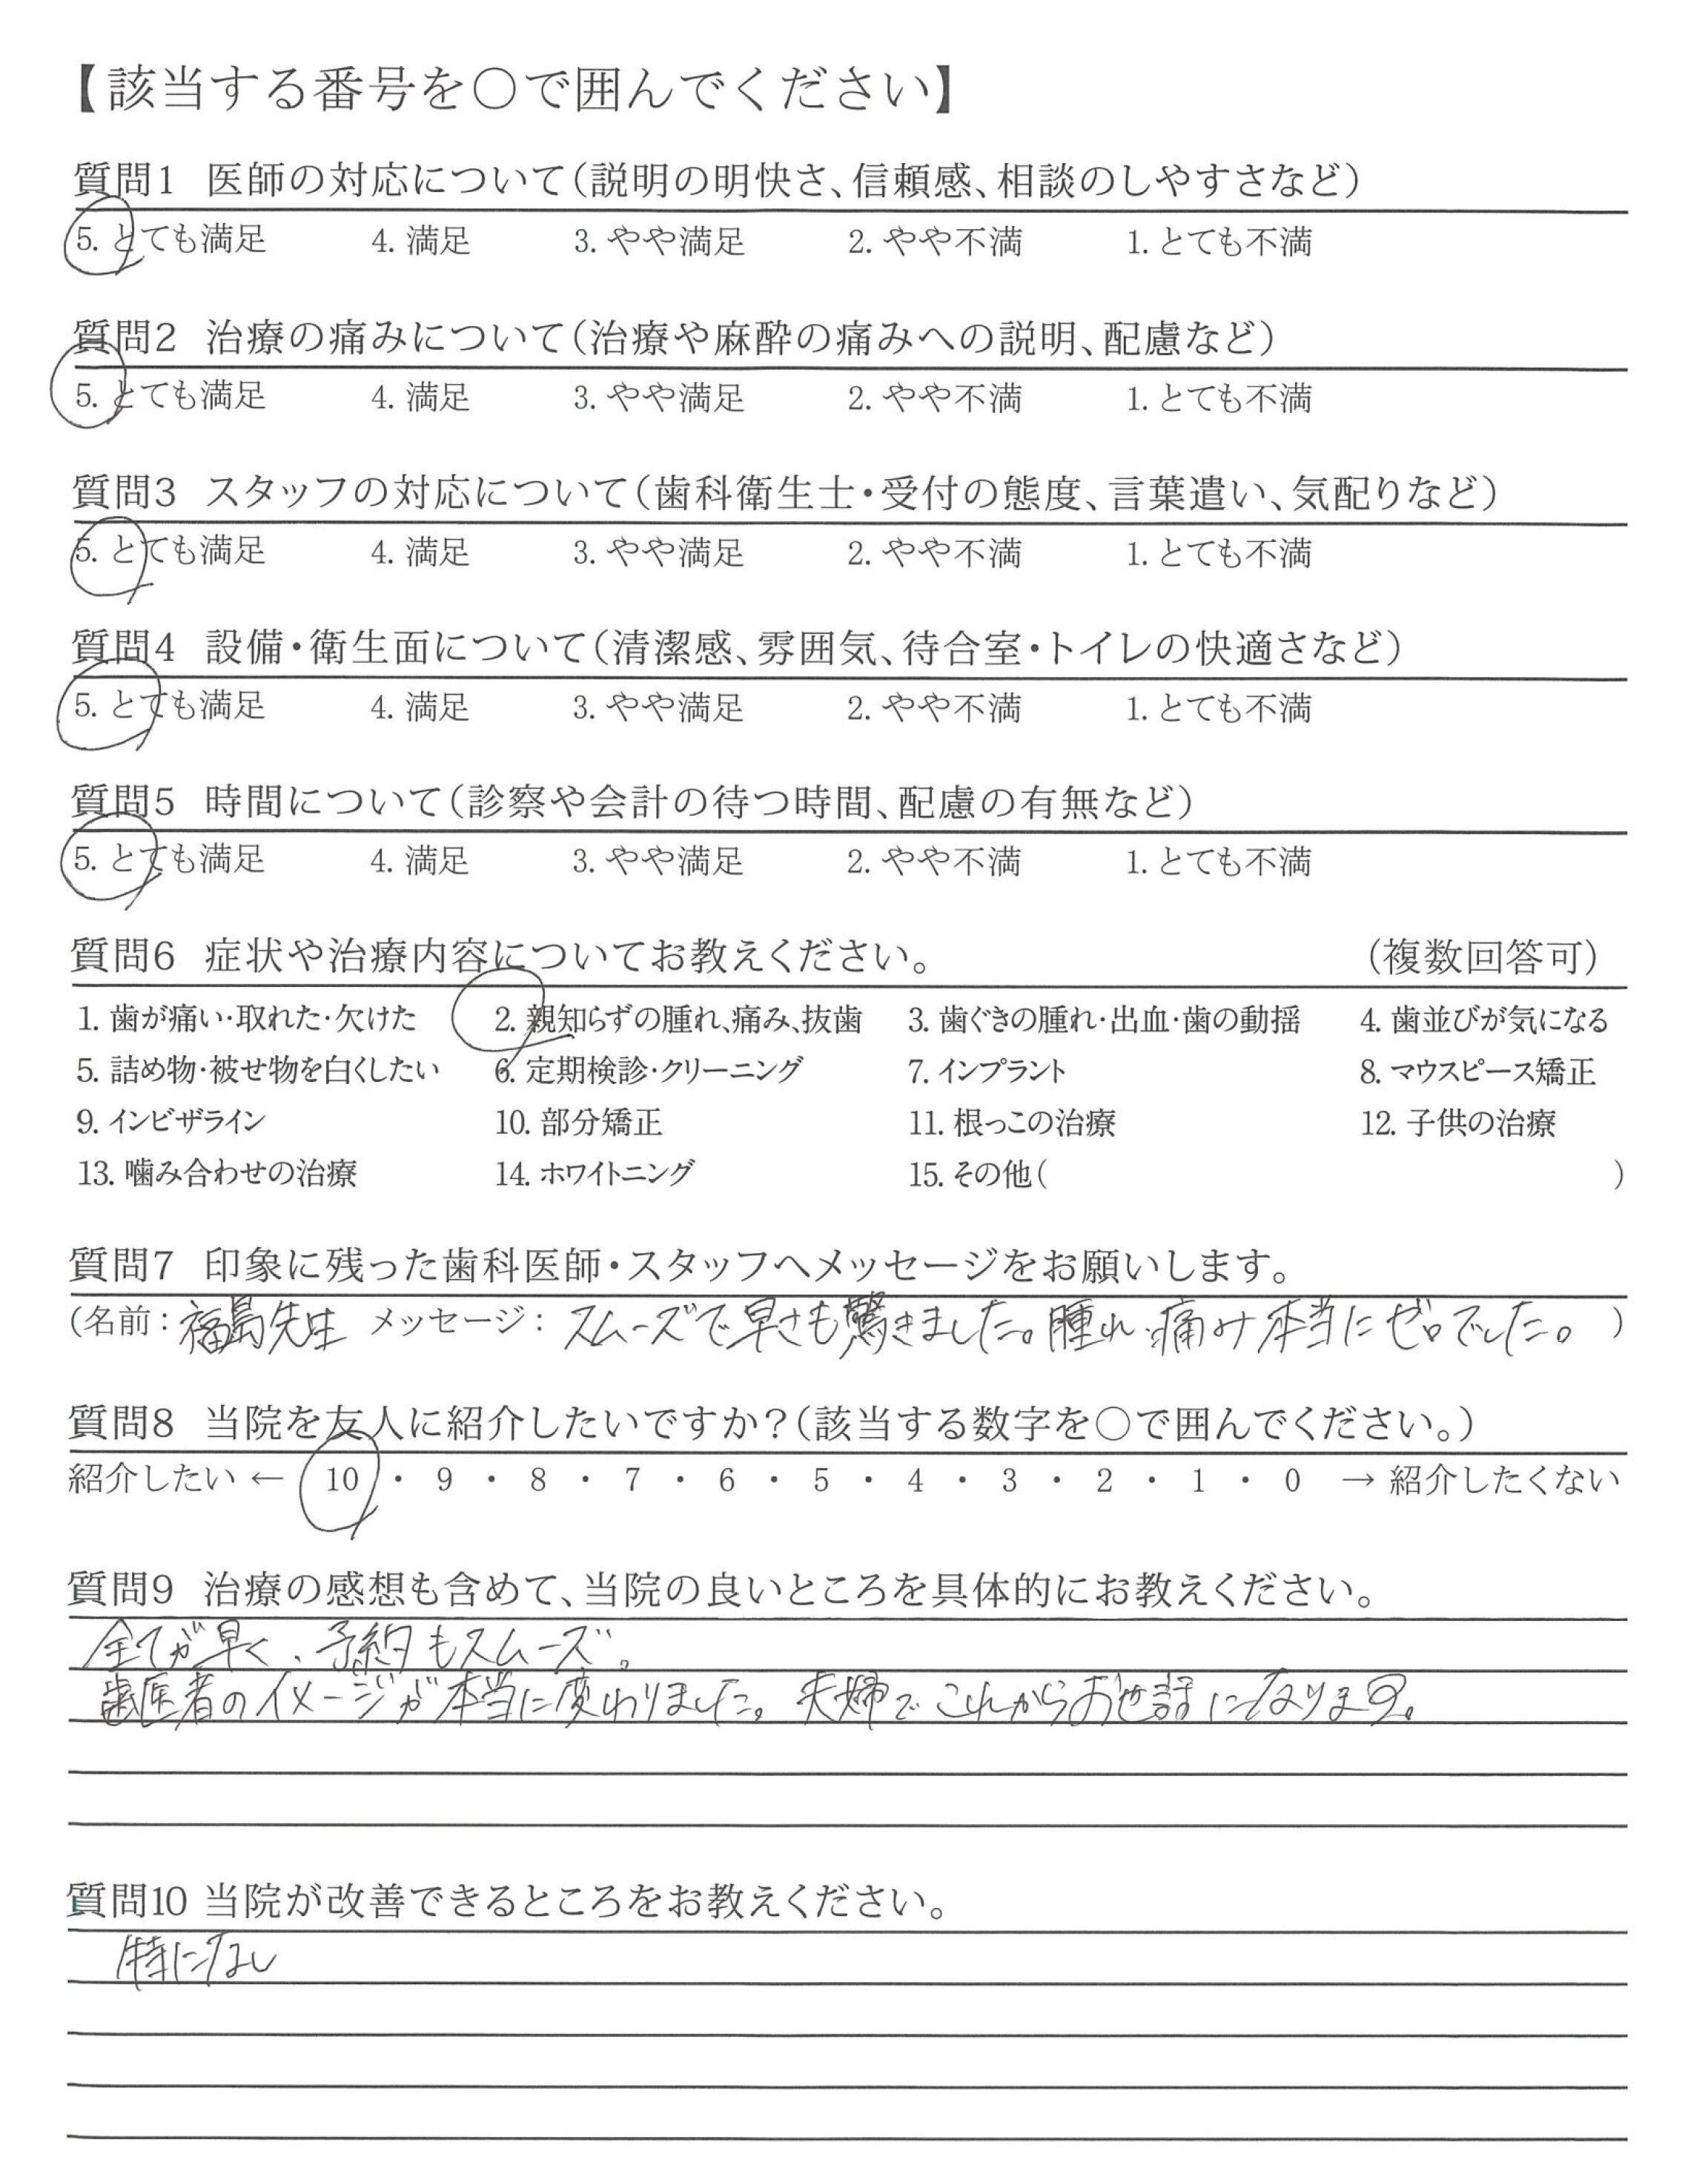 【該当する番号を○で囲んでください】
質問1 医師の対応について(説明の明快さ、信頼感、相談のしやすさなど)
5. とても満足 4. 満足 3. やや満足 2. やや不満 1. とても不満
質問2 治療の痛みについて(治療や麻酔の痛みへの説明、配慮など)
5. とても満足 4. 満足 3. やや満足 2. やや不満 1. とても不満
質問3 スタッフの対応について(歯科衛生士・受付の態度、言葉遣い、気配りなど)
5. とても満足 4. 満足 3. やや満足 2. やや不満 1. とても不満
質問4 設備・衛生面について(清潔感、雰囲気、待合室・トイレの快適さなど)
5. とても満足 4. 満足 3. やや満足 2. やや不満 1. とても不満
質問5 時間について(診察や会計の待つ時間、配慮の有無など)
5. とても満足 4. 満足 3. やや満足 2. やや不満 1. とても不満
質問6 症状や治療内容についてお教えください。 (複数回答可)
1. 歯が痛い・取れた・欠けた 2. 親知らずの腫れ、痛み、抜歯 3. 歯ぐきの腫れ・出血・歯の動揺 4. 歯並びが気になる
5. 詰め物・被せ物を白くしたい 6. 定期検診・クリーニング 7. インプラント 8. マウスピース矯正
9. インビザライン 10. 部分矯正 11. 根っこの治療 12. 子供の治療
13. 噛み合わせの治療 14. ホワイトニング 15. その他( )
質問7 印象に残った歯科医師・スタッフへメッセージをお願いします。
(名前：福島先生 メッセージ：スムーズで早さも驚きました。腫れ、痛み本当にゼロでした。)
質問8 当院を友人に紹介したいですか？(該当する数字を○で囲んでください。)
紹介したい ← 10 ・ 9 ・ 8 ・ 7 ・ 6 ・ 5 ・ 4 ・ 3 ・ 2 ・ 1 ・ 0 → 紹介したくない
質問9 治療の感想も含めて、当院の良いところを具体的にお教えください。
全てが早く、予約もスムーズ。
歯医者のイメージが本当に変わりました。夫婦でこれからお世話になります。
質問10 当院が改善できるところをお教えください。
特になし